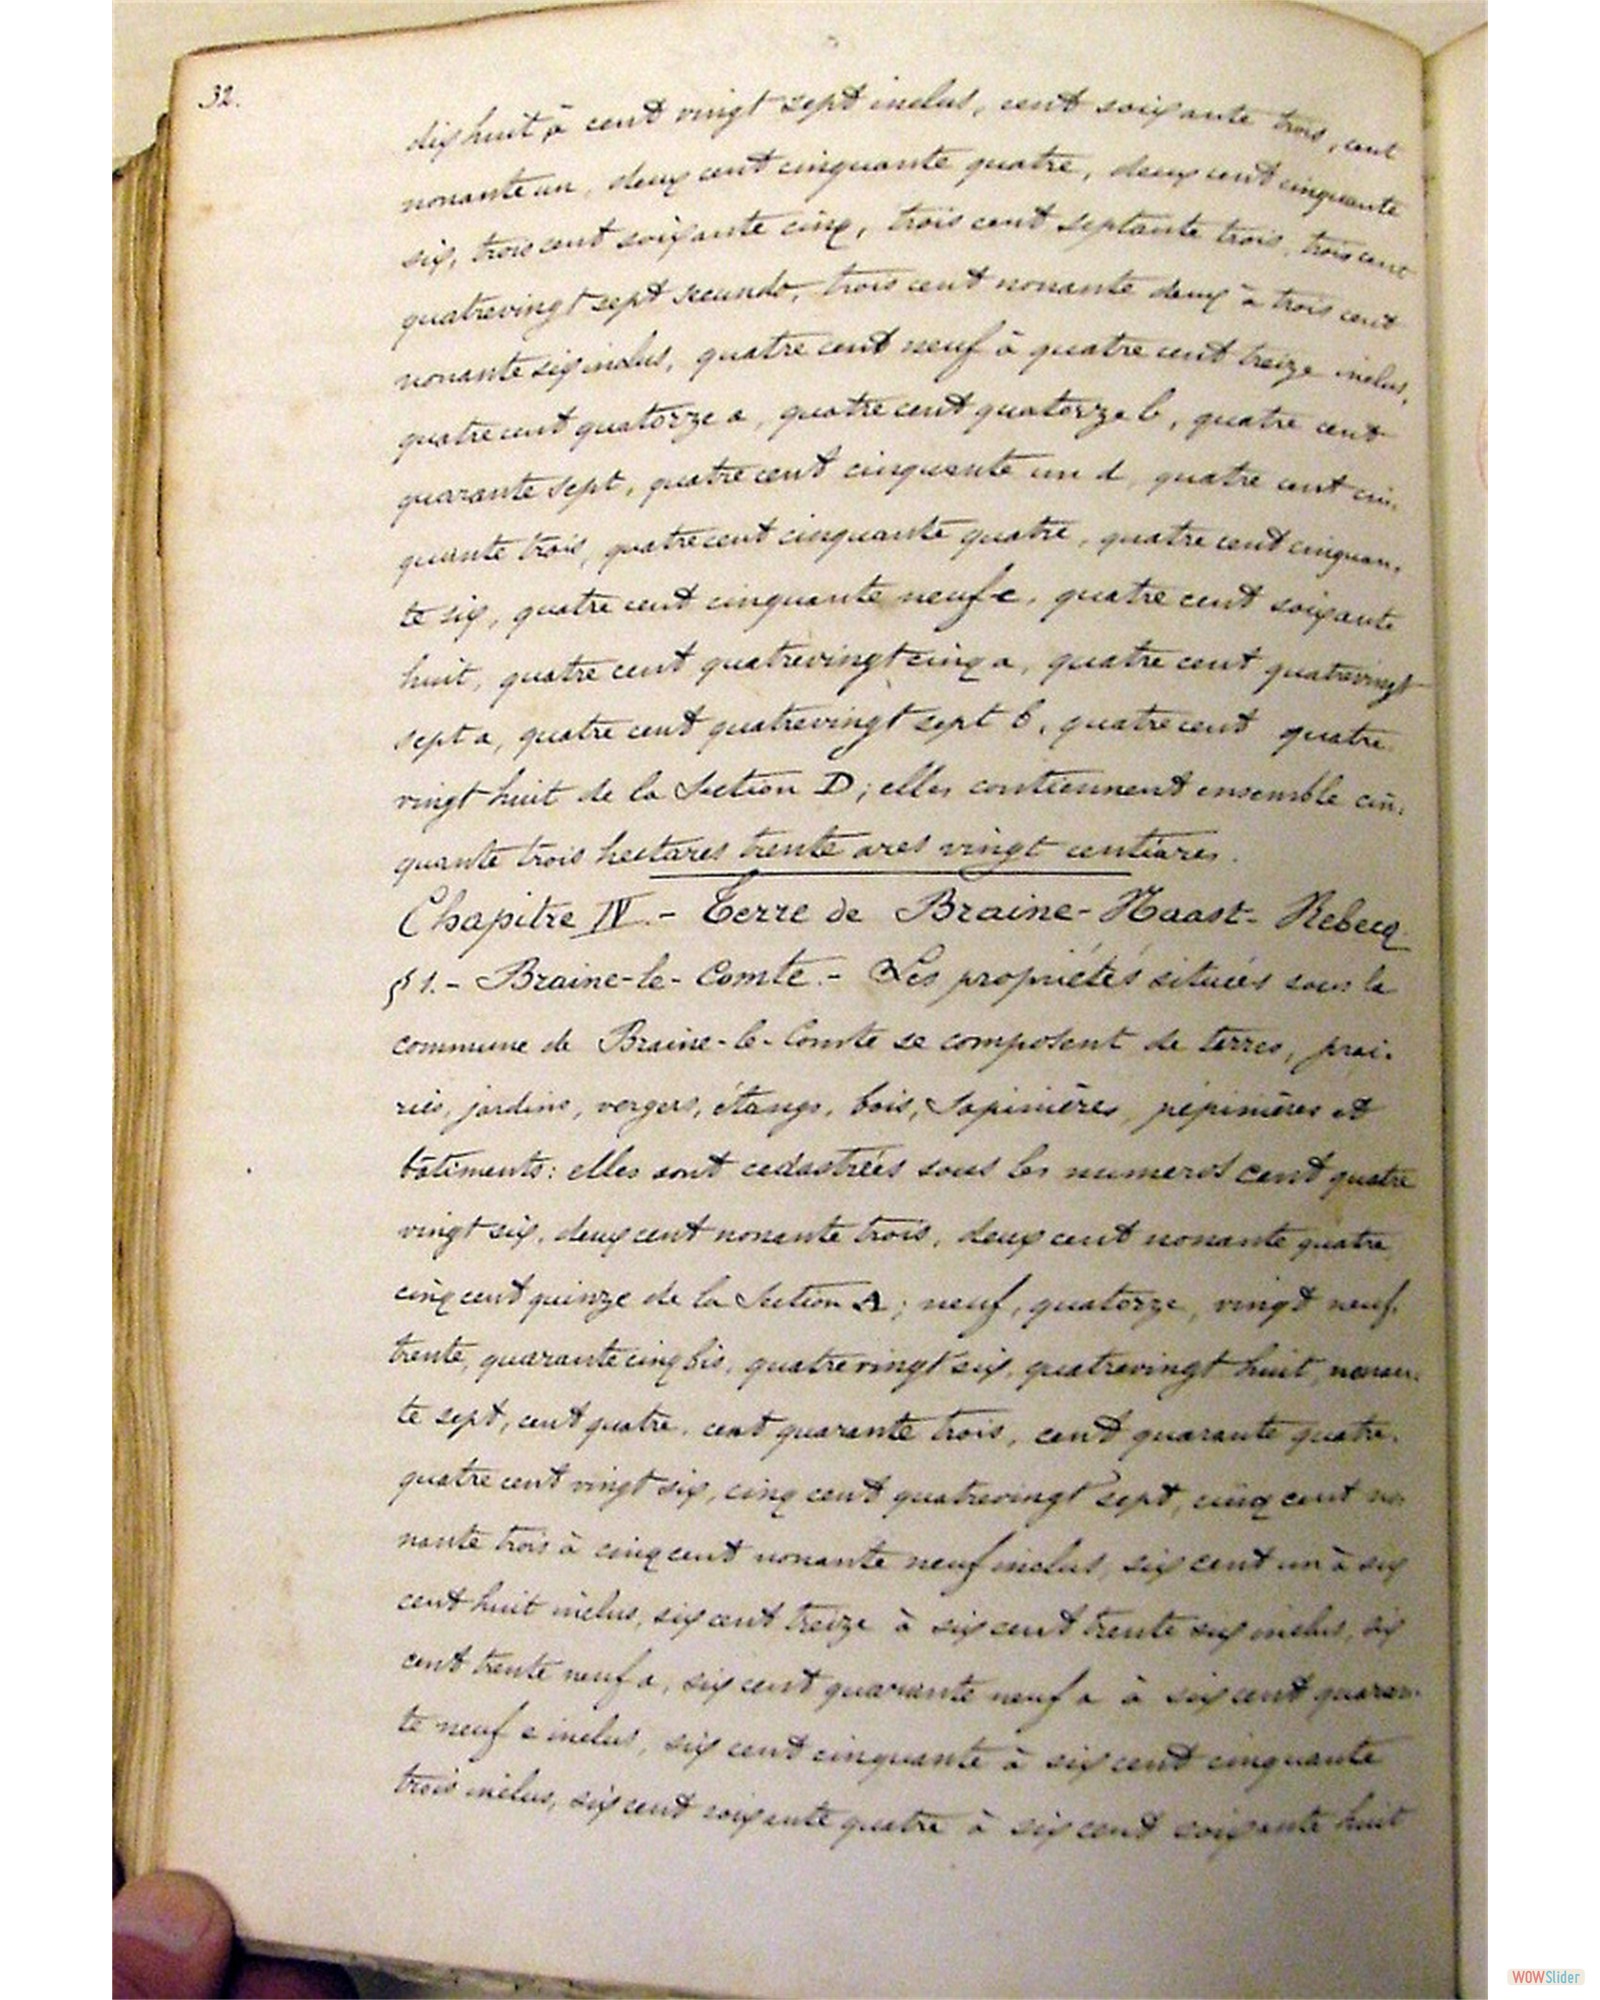 32.
dix huit à cent vingt sept inclus, cent soixante trois, cent
nonante un, deux cent cinquante quatre, deux cent cinquante
six, trois cent soixante cinq, trois cent septante trois, trois cent
quatrevingt sept secundo, trois cent nonante deux à trois cent
nonante six inclus, quatre cent neuf à quatre cent treize inclus,
quatre cent quatorze a, quatre cent quatorze b, quatre cent
quarante sept, quatre cent cinquante un d, quatre cent cin-
quante trois, quatre cent cinquante quatre, quatre cent cinquan-
te six, quatre cent cinquante neuf c, quatre cent soixante
huit, quatre cent quatrevingt cinq a, quatre cent quatrevingt
sept a, quatre cent quatrevingt sept b, quatre cent quatre
vingt huit de la Section D; elles contiennent ensemble cin-
quante trois hectares trente ares vingt centiares.
Chapitre IV. - Terre de Braine-Haast-Rebecq
§ 1. - Braine-le-Comte. - Les propriétés situées sous la
commune de Braine-le-Comte se composent de terres, prai-
ries, jardins, vergers, étangs, bois, sapinières, pépinières et
bâtiments: elles sont cadastrées sous les numéros cent quatre
vingt six, deux cent nonante trois, deux cent nonante quatre
cinq cent quinze de la Section A; neuf, quatorze, vingt neuf,
trente, quarante cinq bis, quatrevingt six, quatrevingt huit, nonan-
te sept, cent quatre, cent quarante trois, cent quarante quatre,
quatre cent vingt six, cinq cent quatrevingt sept, cinq cent no-
nante trois à cinq cent nonante neuf inclus, six cent un à six
cent huit inclus, six cent treize à six cent trente six inclus, six
cent trente neuf a, six cent quarante neuf a à six cent quaran-
te neuf e inclus, six cent cinquante à six cent cinquante
trois inclus, six cent soixante quatre à six cent soixante huit
WOWSlider